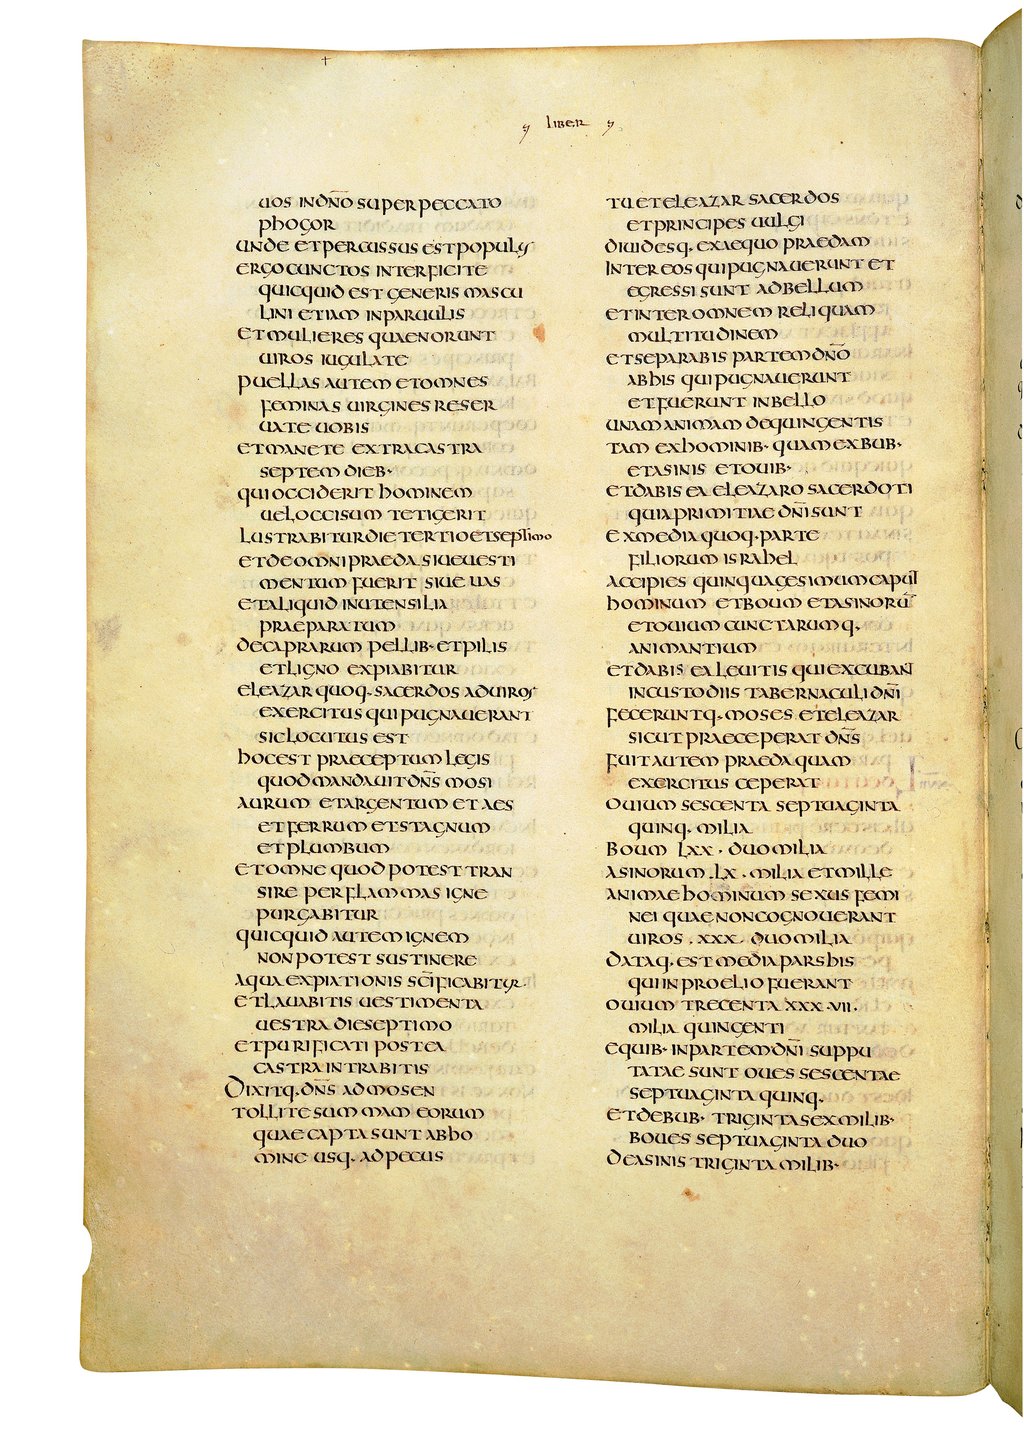 liber
uos in dn̄o super peccato
phogor
unde et percussus est populus
ergo cunctos interficite
quicquid est generis mascu
lini etiam in paruulis
et mulieres quae norunt
uiros iugulate
puellas autem et omnes
feminas uirgines reser
uate uobis
et manete extra castra
septem dieb·
qui occiderit hominem
uel occisum tetigerit
lustrabitur die tertio et septimo
et de omni praeda siue uesti
mentum fuerit siue uas
et aliquid in utensilia
praeparatum
de caprarum pellib· et pilis
et ligno expiabitur
eleazar quoq· sacerdos ad uiros
exercitus qui pugnauerant
sic locutus est
hoc est praeceptum legis
quod mandauit dn̄s mosi
aurum et argentum et aes
et ferrum et stagnum
et plumbum
et omne quod potest tran
sire per flammas igne
purgabitur
quicquid autem ignem
non potest sustinere
aqua expiationis sc̄ificabitur·
et lauabitis uestimenta
uestra die septimo
et purificati postea
castra intrabitis
Dixitq· dn̄s ad mosen
tollite summam eorum
quae capta sunt ab ho
mine usq· ad pecus
tu et eleazar sacerdos
et principes uulgi
diuidesq· ex aequo praedam
inter eos qui pugnauerunt et
egressi sunt ad bellum
et inter omnem reliquam
multitudinem
et separabis partem dn̄o
ab his qui pugnauerunt
et fuerunt in bello
unam animam de quingentis
tam ex hominib· quam ex bub·
et asinis et ouib·
et dabis ea eleazaro sacerdoti
quia primitiae dn̄i sunt
ex media quoq· parte
filiorum israhel
accipies quinquagesimum caput
hominum et boum et asinorū
et ouium cunctarumq·
animantium
et dabis ea leuitis qui excubant
in custodiis tabernaculi dn̄i
feceruntq· moses et eleazar
sicut praeceperat dn̄s
fuit autem praeda quam
exercitus ceperat
ouium sescenta septuaginta
quinq· milia
boum lxx · duo milia
asinorum ·lx · milia et mille
animae hominum sexus femi
nei quae non cognouerant
uiros ·xxx· duo milia
dataq· est media pars his
qui in proelio fuerant
ouium trecenta xxx·vii·
milia quingenti
e quib· in partem dn̄i suppu
tatae sunt oues sescentae
septuaginta quinq·
et de bub· triginta sex milib·
boues septuaginta duo
de asinis triginta milib·